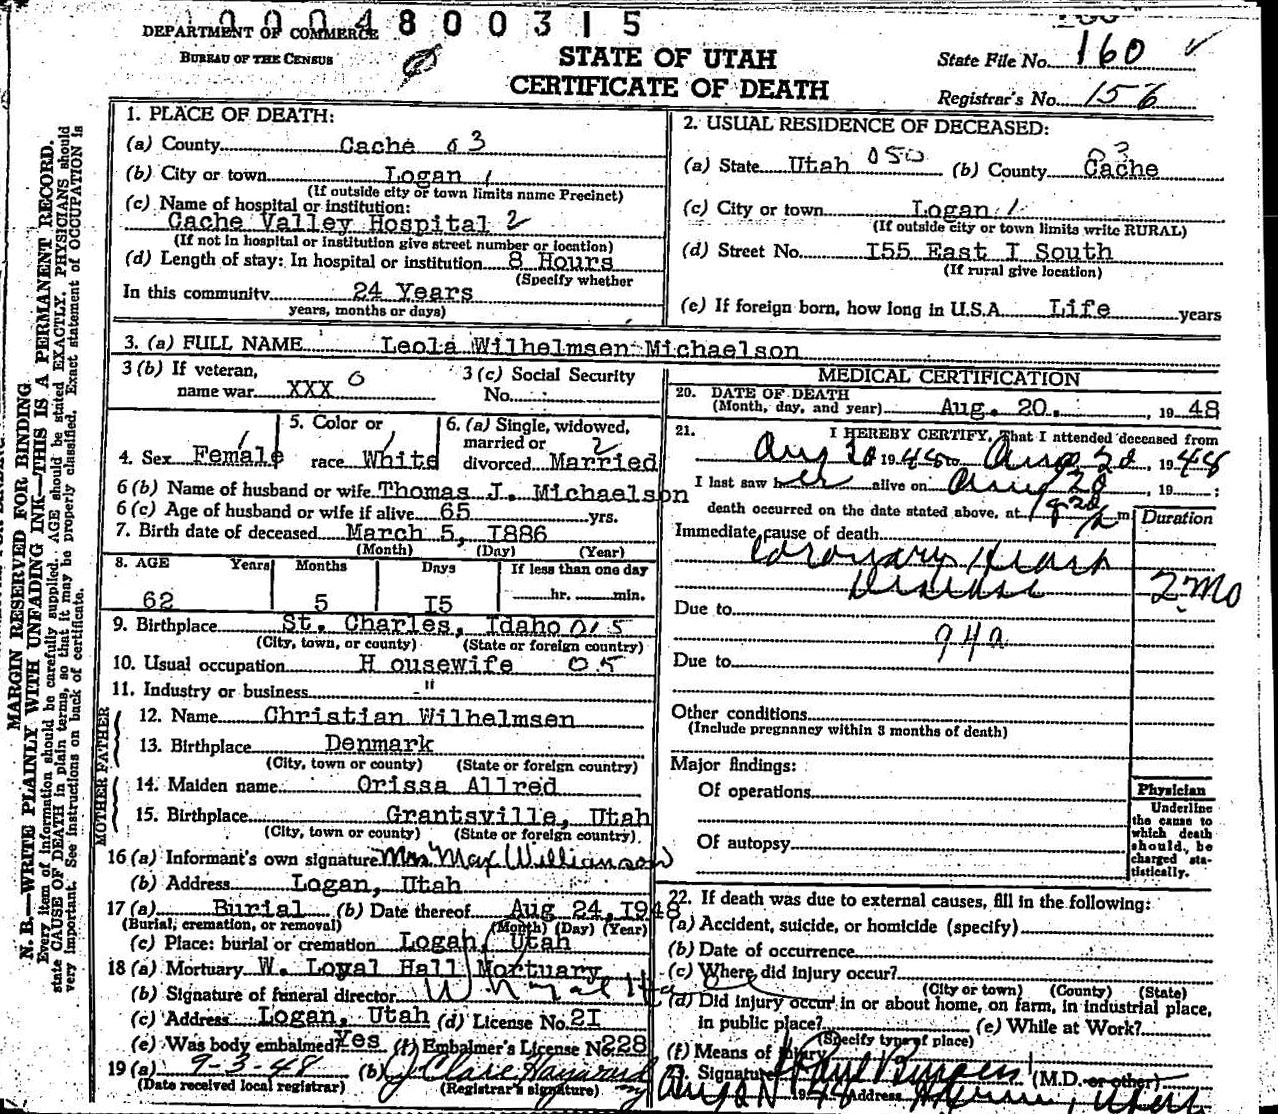 1 0 0 0 4 8 0 0 3 1 5
DEPARTMENT OF COMMERCE
BUREAU OF THE CENSUS
STATE OF UTAH
CERTIFICATE OF DEATH
State File No. 160 ✓
Registrar's No. 156
MARGIN RESERVED FOR BINDING
N. B.—WRITE PLAINLY WITH UNFADING INK—THIS IS A PERMANENT RECORD.
Every item of information should be carefully supplied. AGE should be stated EXACTLY. PHYSICIANS should
state CAUSE OF DEATH in plain terms, so that it may be properly classified. Exact statement of OCCUPATION is
very important. See instructions on back of certificate.
1. PLACE OF DEATH:
(a) County Cache 03
(b) City or town Logan 1
(If outside city or town limits name Precinct)
(c) Name of hospital or institution:
Cache Valley Hospital 2
(If not in hospital or institution give street number or location)
(d) Length of stay: In hospital or institution 8 Hours
(Specify whether
In this community 24 Years
years, months or days)
2. USUAL RESIDENCE OF DECEASED:
(a) State Utah 050 (b) County Cache 03
(c) City or town Logan 1
(If outside city or town limits write RURAL)
(d) Street No. I55 East I South
(If rural give location)
(e) If foreign born, how long in U.S.A. Life years
3. (a) FULL NAME Leola Wilhelmsen Michaelson
3 (b) If veteran,
name war XXX 0
3 (c) Social Security
No.
4. Sex Female 1
5. Color or
race White 1
6. (a) Single, widowed,
married or 2
divorced Married
6 (b) Name of husband or wife Thomas J. Michaelson
6 (c) Age of husband or wife if alive 65 yrs.
7. Birth date of deceased March 5, I886
(Month) (Day) (Year)
8. AGE Years Months Days If less than one day
62 5 I5 hr. min.
9. Birthplace St. Charles, Idaho 015
(City, town, or county) (State or foreign country)
10. Usual occupation H ousewife 05
11. Industry or business -"
FATHER
12. Name Christian Wilhelmsen
13. Birthplace Denmark
(City, town or county) (State or foreign country)
MOTHER
14. Maiden name Orissa Allred
15. Birthplace Grantsville, Utah
(City, town or county) (State or foreign country)
16 (a) Informant's own signature Mrs Max Williamson
(b) Address Logan, Utah
17 (a) Burial (b) Date thereof Aug 24, I948
(Burial, cremation, or removal) (Month) (Day) (Year)
(c) Place: burial or cremation Logan, Utah
18 (a) Mortuary W. Loyal Hall Mortuary
(b) Signature of funeral director W Loyal Hall
(c) Address Logan, Utah (d) License No. 2I
(e) Was body embalmed? Yes (f) Embalmer's License No. 228
19 (a) 9-3-48 (b)
(Date received local registrar) (Registrar's signature)
MEDICAL CERTIFICATION
20. DATE OF DEATH
(Month, day, and year) Aug. 20. , 19 48
21. I HEREBY CERTIFY, That I attended deceased from
Aug 20 1948 to Aug 20, 1948
I last saw her alive on Aug 20, 19 ;
death occurred on the date stated above, at m
Immediate cause of death
Duration
Coronary Heart
Disease
2 mo
Due to
94a
Due to
Other conditions
(Include pregnancy within 3 months of death)
Major findings:
Of operations
Of autopsy
Physician
Underline
the cause to
which death
should be
charged sta-
tistically.
22. If death was due to external causes, fill in the following:
(a) Accident, suicide, or homicide (specify)
(b) Date of occurrence
(c) Where did injury occur?
(City or town) (County) (State)
(d) Did injury occur in or about home, on farm, in industrial place,
in public place? (e) While at Work?
(Specify type of place)
(f) Means of injury
23. Signature (M.D. or other)
1948 Address